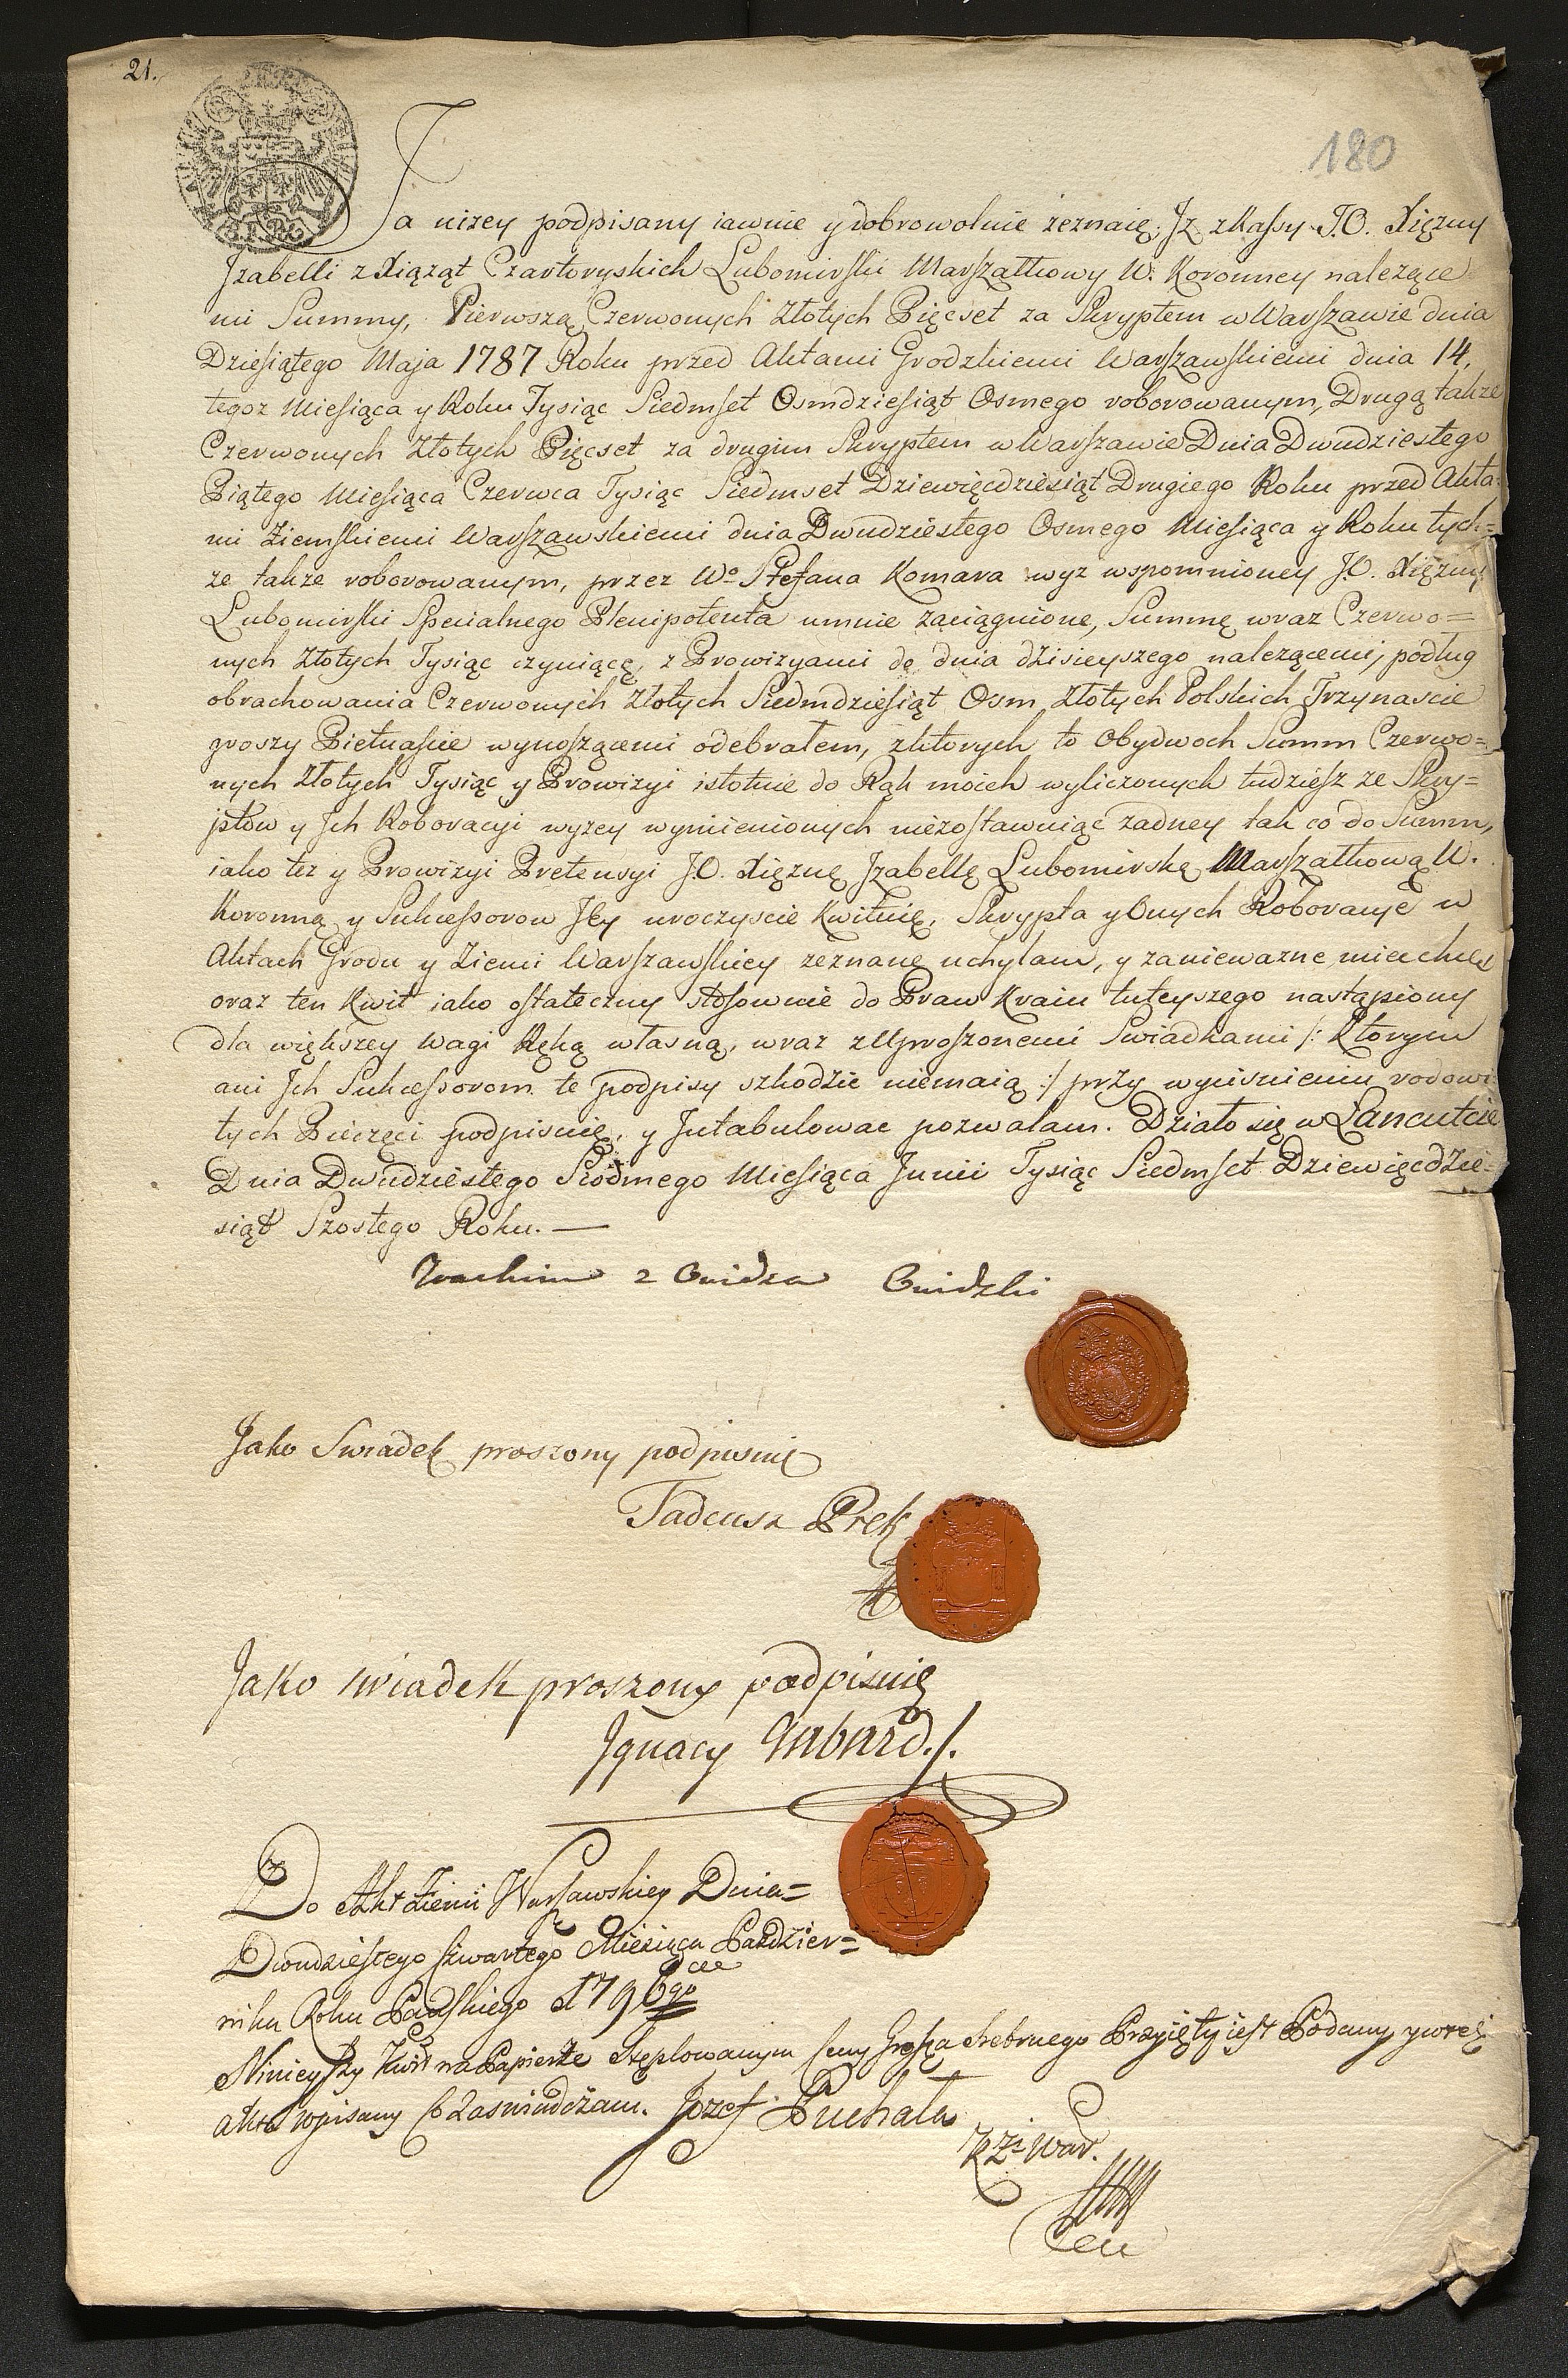 21.
180
Ja niżey podpisany iawnie y dobrowolnie zeznaię, Jż z Kassy J.O. Xiężny
Jzabelli z Xiążąt Czartoryskich Lubomirski Marszałkowy W. Koronney należące
mi Summy, Pierwszą Czerwonych Złotych Pięcset za Skryptem w Warszawie dnia
Dziesiątego Maja 1787 Roku przed Aktami Grodzkiemi Warszawskiemi dnia 14.
tegoz Miesiąca y Roku Tysiąc Siedmset Osmdziesiąt Osmego roborowanym, Drugą także
Czerwonych Złotych Pięcset za drugim Skryptem w Warszawie Dnia Dwudziestego
Piątego Miesiąca Czerwca Tysiąc Siedmset Dziewięcdziesiąt Drugiego Roku przed Akta=
mi Ziemskiemi Warszawskiemi dnia Dwudziestego Osmego Miesiąca y Roku tych=
ze także roborowanym, przez Wo Stefana Komara wyz wspomnioney J.O. Xiężny
Lubomirski Specialnego Plenipotenta umnie zaciągnione, Summę wraz Czerwo=
nych Złotych Tysiąc czyniącę, z Prowizyami do dnia dzisieyszego nalezącemi, podług
obrachowania Czerwonych Złotych Siedmdziesiąt Osm Złotych Polskich Trzynascie
groszy Pietnascie wynoszącemi odebrałem, z których to Obydwoch Summ Czerwo=
nych Złotych Tysiąc y Prowizyi istotnie do Rąk moich wyliczonych tudziesz ze Skry=
ptow y Jch Roboracyi wyzey wymienionych niezostawuiąc żadney tak co do Summ,
iako tez y Prowizyi Pretensyi J.O. Xiężnę Jzabellę Lubomirską Marszałkową W.
Koronną y Sukcessorow Jey uroczyscie Kwituię, Skrypta y Onych Roboracye w
Aktach Grodu y Ziemi Warszawskiey zeznane uchylam, y zanieważne mieć chcę
oraz ten Kwit iako ostateczny stosownie do Praw Kraiu tuteyszego nastąpiony
dla większey wagi Ręką własną, wraz z Uproszonemi Swiadkami /: Ktorym
ani Jch Sukcessorom te podpisy szkodzic niemaią :/ przy wycisnieniu rodowi=
tych Pieczęci podpisuię, y Jntabulowac pozwalam. Działo się w Łancutcie
Dnia Dwudziestego Siodmego Miesiąca Junii Tysiąc Siedmset Dziewięcdzie=
siąt Szostego Roku.
Jako Swiadek proszony podpisuię
Tadeusz Prek
Jako swiadek proszony podpisuię
Jgnacy
Do Akt Ziemi Warszawskiey Dnia=
Dwudziestego Czwartego Miesiąca Pazdzier=
nika Roku Pańskiego 1796go
Ninieyszy Kwit na Papierze Stęplowanym Ceny Grosza Srebrnego Przyięty iest Podany y w też
Akta wpisany Co Zaswiadczam. Jozef Puchała